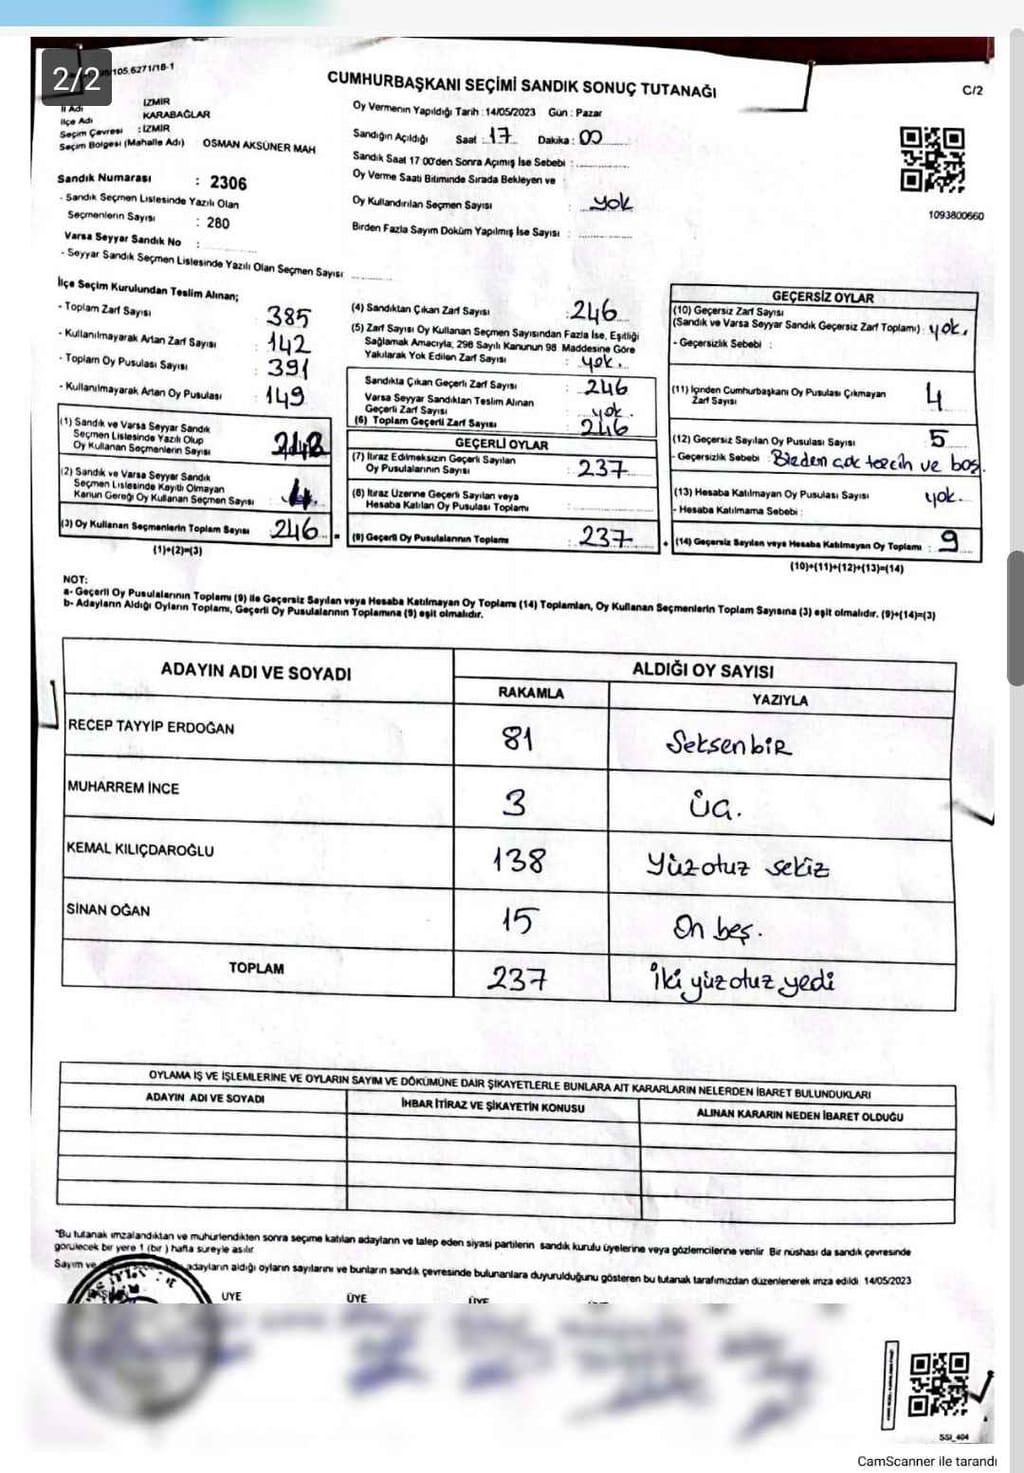 2/2
105.6271/18-1
CUMHURBAŞKANI SEÇİMİ SANDIK SONUÇ TUTANAĞI
C/2
İl Adı İZMİR
İlçe Adı KARABAĞLAR
Seçim Çevresi : İZMİR
Seçim Bölgesi (Mahalle Adı) OSMAN AKSÜNER MAH
Sandık Numarası : 2306
- Sandık Seçmen Listesinde Yazılı Olan
Seçmenlerin Sayısı : 280
Varsa Seyyar Sandık No :
- Seyyar Sandık Seçmen Listesinde Yazılı Olan Seçmen Sayısı
Oy Vermenin Yapıldığı Tarih : 14/05/2023 Gün : Pazar
Sandığın Açıldığı Saat : 17 Dakika : 00
Sandık Saat 17 00'den Sonra Açımış İse Sebebi :
Oy Verme Saati Bitiminde Sırada Bekleyen ve
Oy Kullandırılan Seçmen Sayısı : yok
Birden Fazla Sayım Döküm Yapılmış İse Sayısı :
1093800660
İlçe Seçim Kurulundan Teslim Alınan;
- Toplam Zarf Sayısı : 385
- Kullanılmayarak Artan Zarf Sayısı : 142
- Toplam Oy Pusulası Sayısı : 391
- Kullanılmayarak Artan Oy Pusulası : 149
(1) Sandık ve Varsa Seyyar Sandık
Seçmen Listesinde Yazılı Olup
Oy Kullanan Seçmenlerin Sayısı
(2) Sandık ve Varsa Seyyar Sandık
Seçmen Listesinde Kayıtlı Olmayan
Kanun Gereği Oy Kullanan Seçmen Sayısı 4.
(3) Oy Kullanan Seçmenlerin Toplam Sayısı 246
(1)+(2)=(3)
(4) Sandıktan Çıkan Zarf Sayısı : 246
(5) Zarf Sayısı Oy Kullanan Seçmen Sayısından Fazla İse, Eşitliği
Sağlamak Amacıyla, 298 Sayılı Kanunun 98. Maddesine Göre
Yakılarak Yok Edilen Zarf Sayısı : yok.
Sandıkta Çıkan Geçerli Zarf Sayısı : 246
Varsa Seyyar Sandıktan Teslim Alınan
Geçerli Zarf Sayısı : yok.
(6) Toplam Geçerli Zarf Sayısı : 246
GEÇERLİ OYLAR
(7) İtiraz Edilmeksizin Geçerli Sayılan
Oy Pusulalarının Sayısı : 237
(8) İtiraz Üzerine Geçerli Sayılan veya
Hesaba Katılan Oy Pusulası Toplamı :
(9) Geçerli Oy Pusulalarının Toplamı : 237
GEÇERSİZ OYLAR
(10) Geçersiz Zarf Sayısı
(Sandık ve Varsa Seyyar Sandık Geçersiz Zarf Toplamı) : yok.
- Geçersizlik Sebebi :
(11) İçinden Cumhurbaşkanı Oy Pusulası Çıkmayan
Zarf Sayısı : 4
(12) Geçersiz Sayılan Oy Pusulası Sayısı : 5
- Geçersizlik Sebebi : Birden çok tercih ve boş.
(13) Hesaba Katılmayan Oy Pusulası Sayısı : yok.
- Hesaba Katılmama Sebebi :
(14) Geçersiz Sayılan veya Hesaba Katılmayan Oy Toplamı : 9
(10)+(11)+(12)+(13)=(14)
NOT:
a- Geçerli Oy Pusulalarının Toplamı (9) ile Geçersiz Sayılan veya Hesaba Katılmayan Oy Toplamı (14) Toplamları, Oy Kullanan Seçmenlerin Toplam Sayısına (3) eşit olmalıdır. (9)+(14)=(3)
b- Adayların Aldığı Oyların Toplamı, Geçerli Oy Pusulalarının Toplamına (9) eşit olmalıdır.
ADAYIN ADI VE SOYADI ALDIĞI OY SAYISI
RAKAMLA YAZIYLA
RECEP TAYYİP ERDOĞAN 81 Seksenbir
MUHARREM İNCE 3 üç.
KEMAL KILIÇDAROĞLU 138 Yüzotuz sekiz
SİNAN OĞAN 15 On beş.
TOPLAM 237 İki yüz otuz yedi
OYLAMA İŞ VE İŞLEMLERİNE VE OYLARIN SAYIM VE DÖKÜMÜNE DAİR ŞİKAYETLERLE BUNLARA AİT KARARLARIN NELERDEN İBARET BULUNDUKLARI
ADAYIN ADI VE SOYADI İHBAR İTİRAZ VE ŞİKAYETİN KONUSU ALINAN KARARIN NEDEN İBARET OLDUĞU
"Bu tutanak imzalandıktan ve mühürlendikten sonra seçime katılan adayların ve talep eden siyasi partilerin sandık kurulu üyelerine veya gözlemcilerine verilir Bir nüshası da sandık çevresinde
görülecek bir yere 1 (bir) hafta süreyle asılır
Sayım ve adayların aldığı oyların sayılarını ve bunların sandık çevresinde bulunanlara duyurulduğunu gösteren bu tutanak tarafımızdan düzenlenerek imza edildi 14/05/2023
ÜYE ÜYE ÜYE
SSI_404
CamScanner ile tarandı